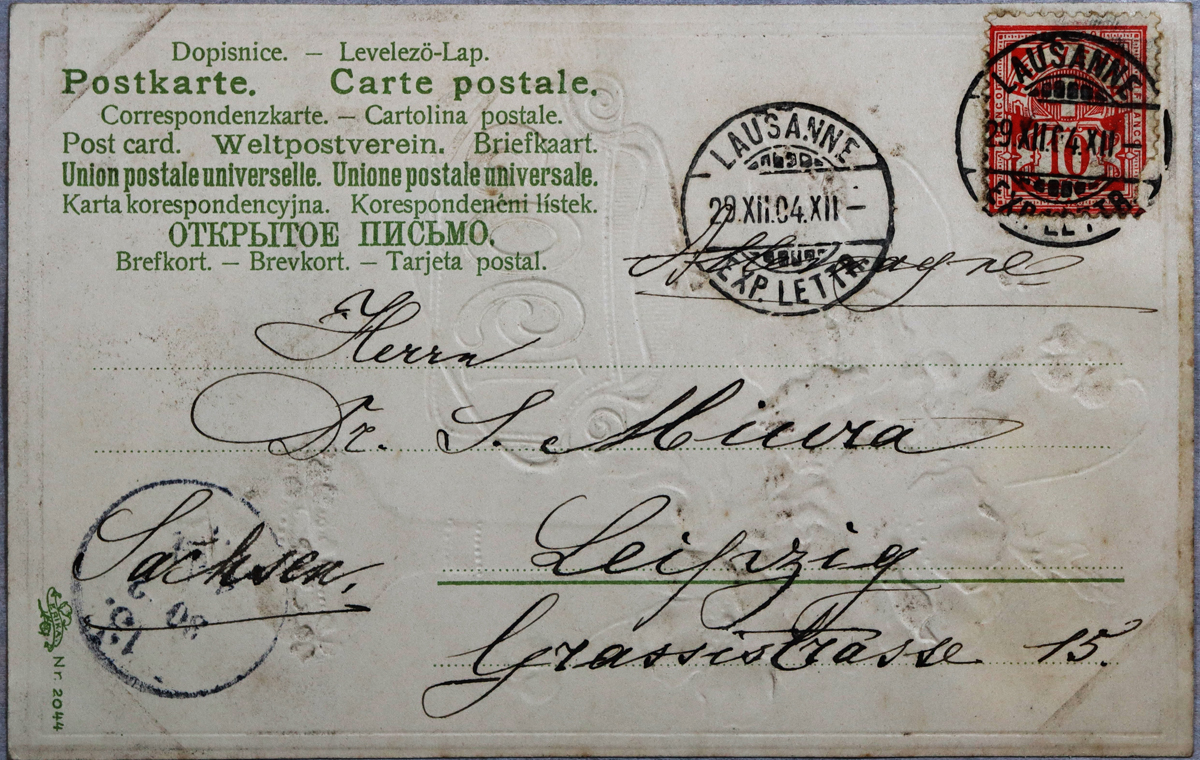 Dopisnice. — Levelezö-Lap.
Postkarte. Carte postale.
Correspondenzkarte. — Cartolina postale.
Post card. Weltpostverein. Briefkaart.
Union postale universelle. Unione postale universale.
Karta korespondencyjna. Korespondenční lístek.
ОТКРЫТОЕ ПИСЬМО.
Brefkort. — Brevkort. — Tarjeta postal.
LAUSANNE
29.XII.04.XII—
EXP. LETTR.
LAUSANNE
29.XII.04.XII—
10
Allemagne
Herrn
Dr. S. Miura
Leipzig
Sachsen.
Grassistrasse 15.
Nr. 2044